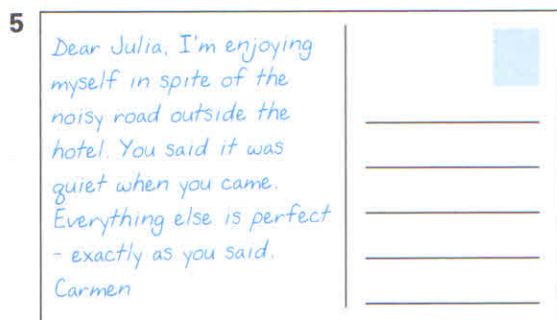 5
Dear Julia, I'm enjoying
myself in spite of the
noisy road outside the
hotel. You said it was
quiet when you came.
Everything else is perfect
- exactly as you said.
Carmen